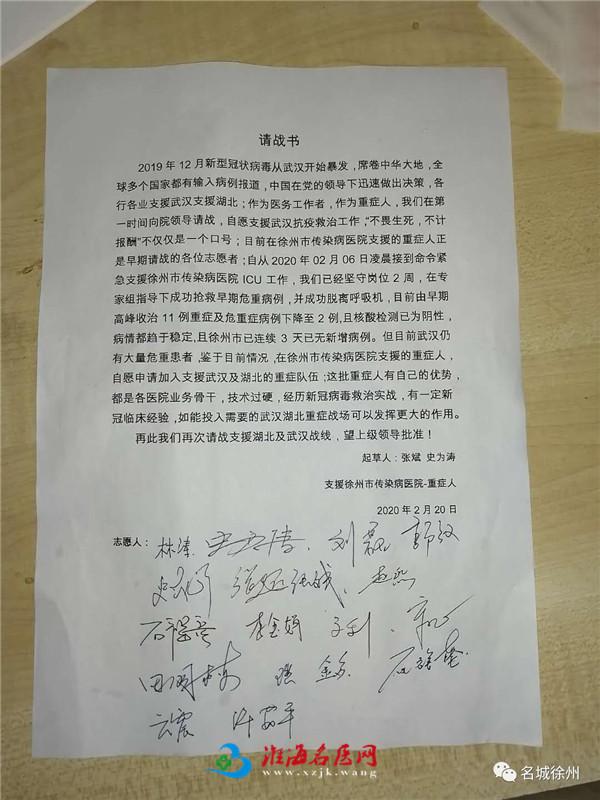 请战书
2019 年 12 月新型冠状病毒从武汉开始暴发，席卷中华大地，全
球多个国家都有输入病例报道，中国在党的领导下迅速做出决策，各
行各业支援武汉支援湖北；作为医务工作者，作为重症人，我们在第
一时间向院领导请战，自愿支援武汉抗疫救治工作，“不畏生死，不计
报酬”不仅仅是一个口号；目前在徐州市传染病医院支援的重症人正
是早期请战的各位志愿者；自从 2020 年 02 月 06 日凌晨接到命令紧
急支援徐州市传染病医院 ICU 工作，我们已经坚守岗位 2 周，在专
家组指导下成功抢救早期危重病例，并成功脱离呼吸机，目前由早期
高峰收治 11 例重症及危重症病例下降至 2 例，且核酸检测已为阴性，
病情都趋于稳定,且徐州市已连续 3 天已无新增病例。但目前武汉仍
有大量危重患者，鉴于目前情况，在徐州市传染病医院支援的重症人，
自愿申请加入支援武汉及湖北的重症队伍；这批重症人有自己的优势，
都是各医院业务骨干，技术过硬，经历新冠病毒救治实战，有一定新
冠临床经验，如能投入需要的武汉湖北重症战场可以发挥更大的作用。
再此我们再次请战支援湖北及武汉战线，望上级领导批准！
起草人：张斌 史为涛
支援徐州市传染病医院-重症人
2020 年 2 月 20 日
志愿人： 林涛 刘磊
李金娟
云震
淮海名医网
www.xzjk.wang
名城徐州